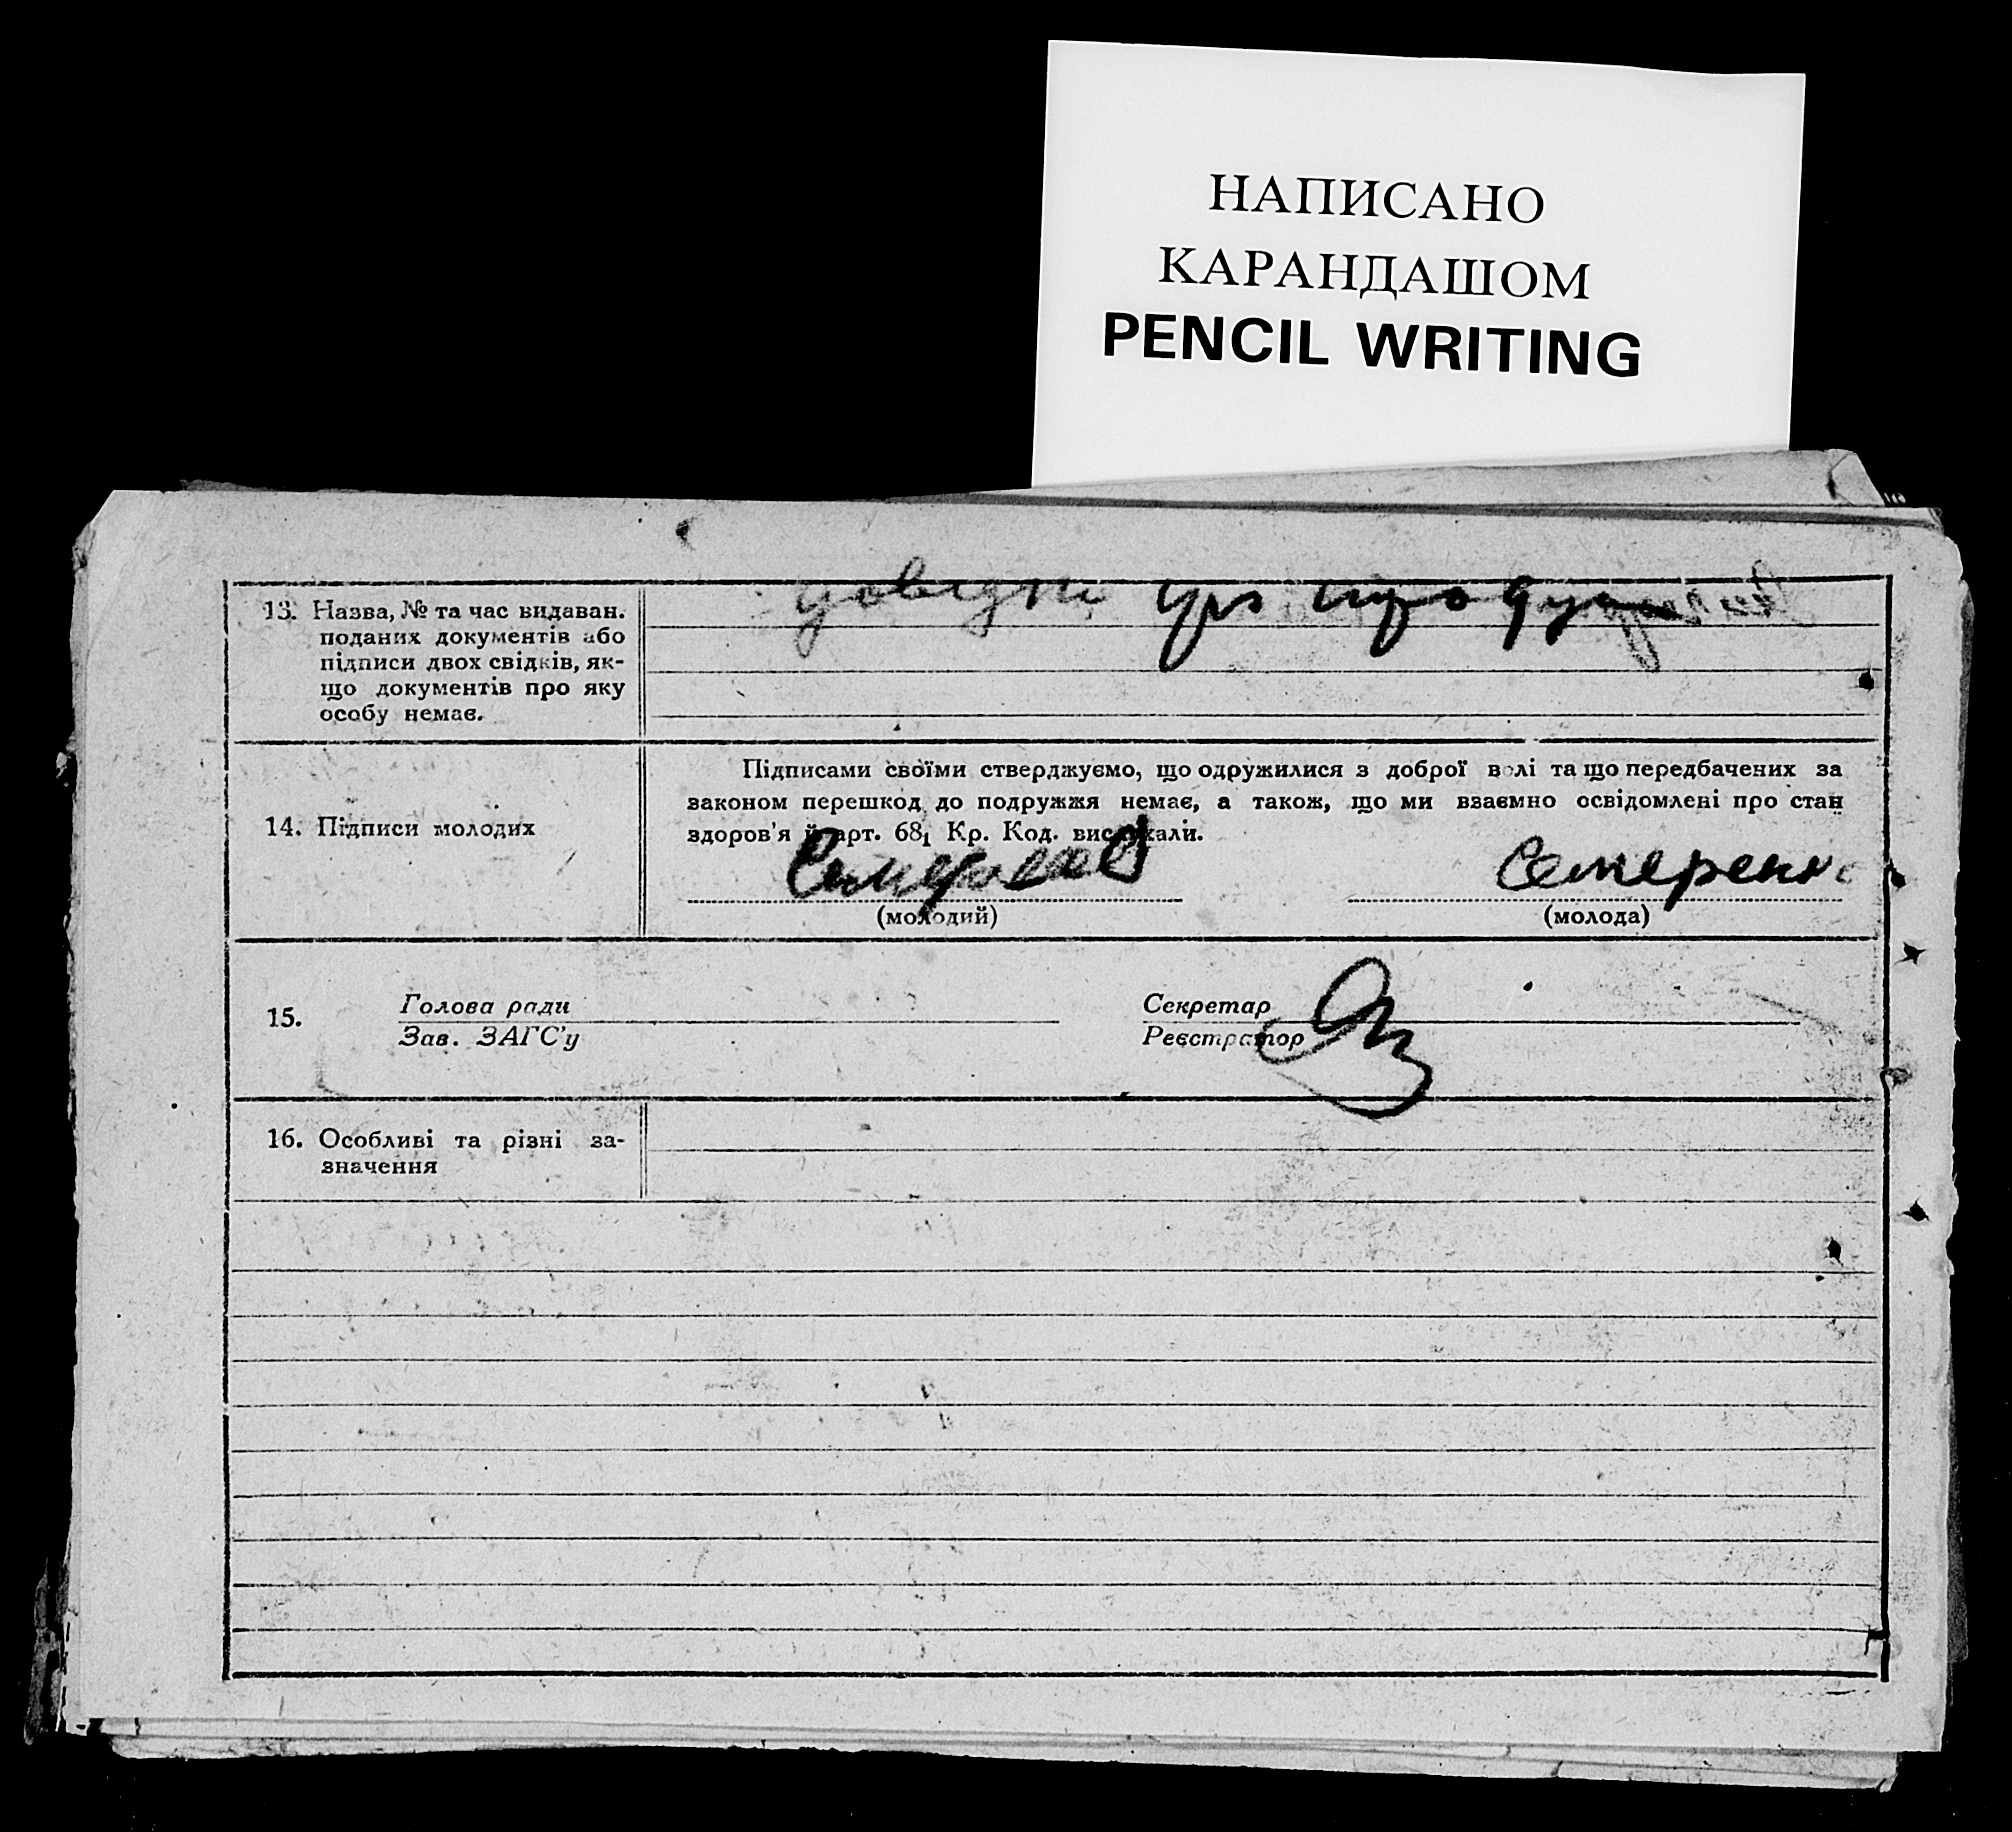 НАПИСАНО
КАРАНДАШОМ
PENCIL WRITING
13. Назва, № та час видаван.
поданих документів або
підписи двох свідків, як-
що документів про яку
особу немає.
довідки про
14. Підписи молодих
Підписами своїми стверджуємо, що одружилися з доброї волі та що передбачених за
законом перешкод до подружжя немає, а також, що ми взаємно освідомлені про стан
здоров'я й арт. 68₁ Кр. Код. вислухали.
Семеренко
(молодий) (молода)
15. Голова ради Секретар
Зав. ЗАГС'у Реєстратор
16. Особливі та різні за-
значення